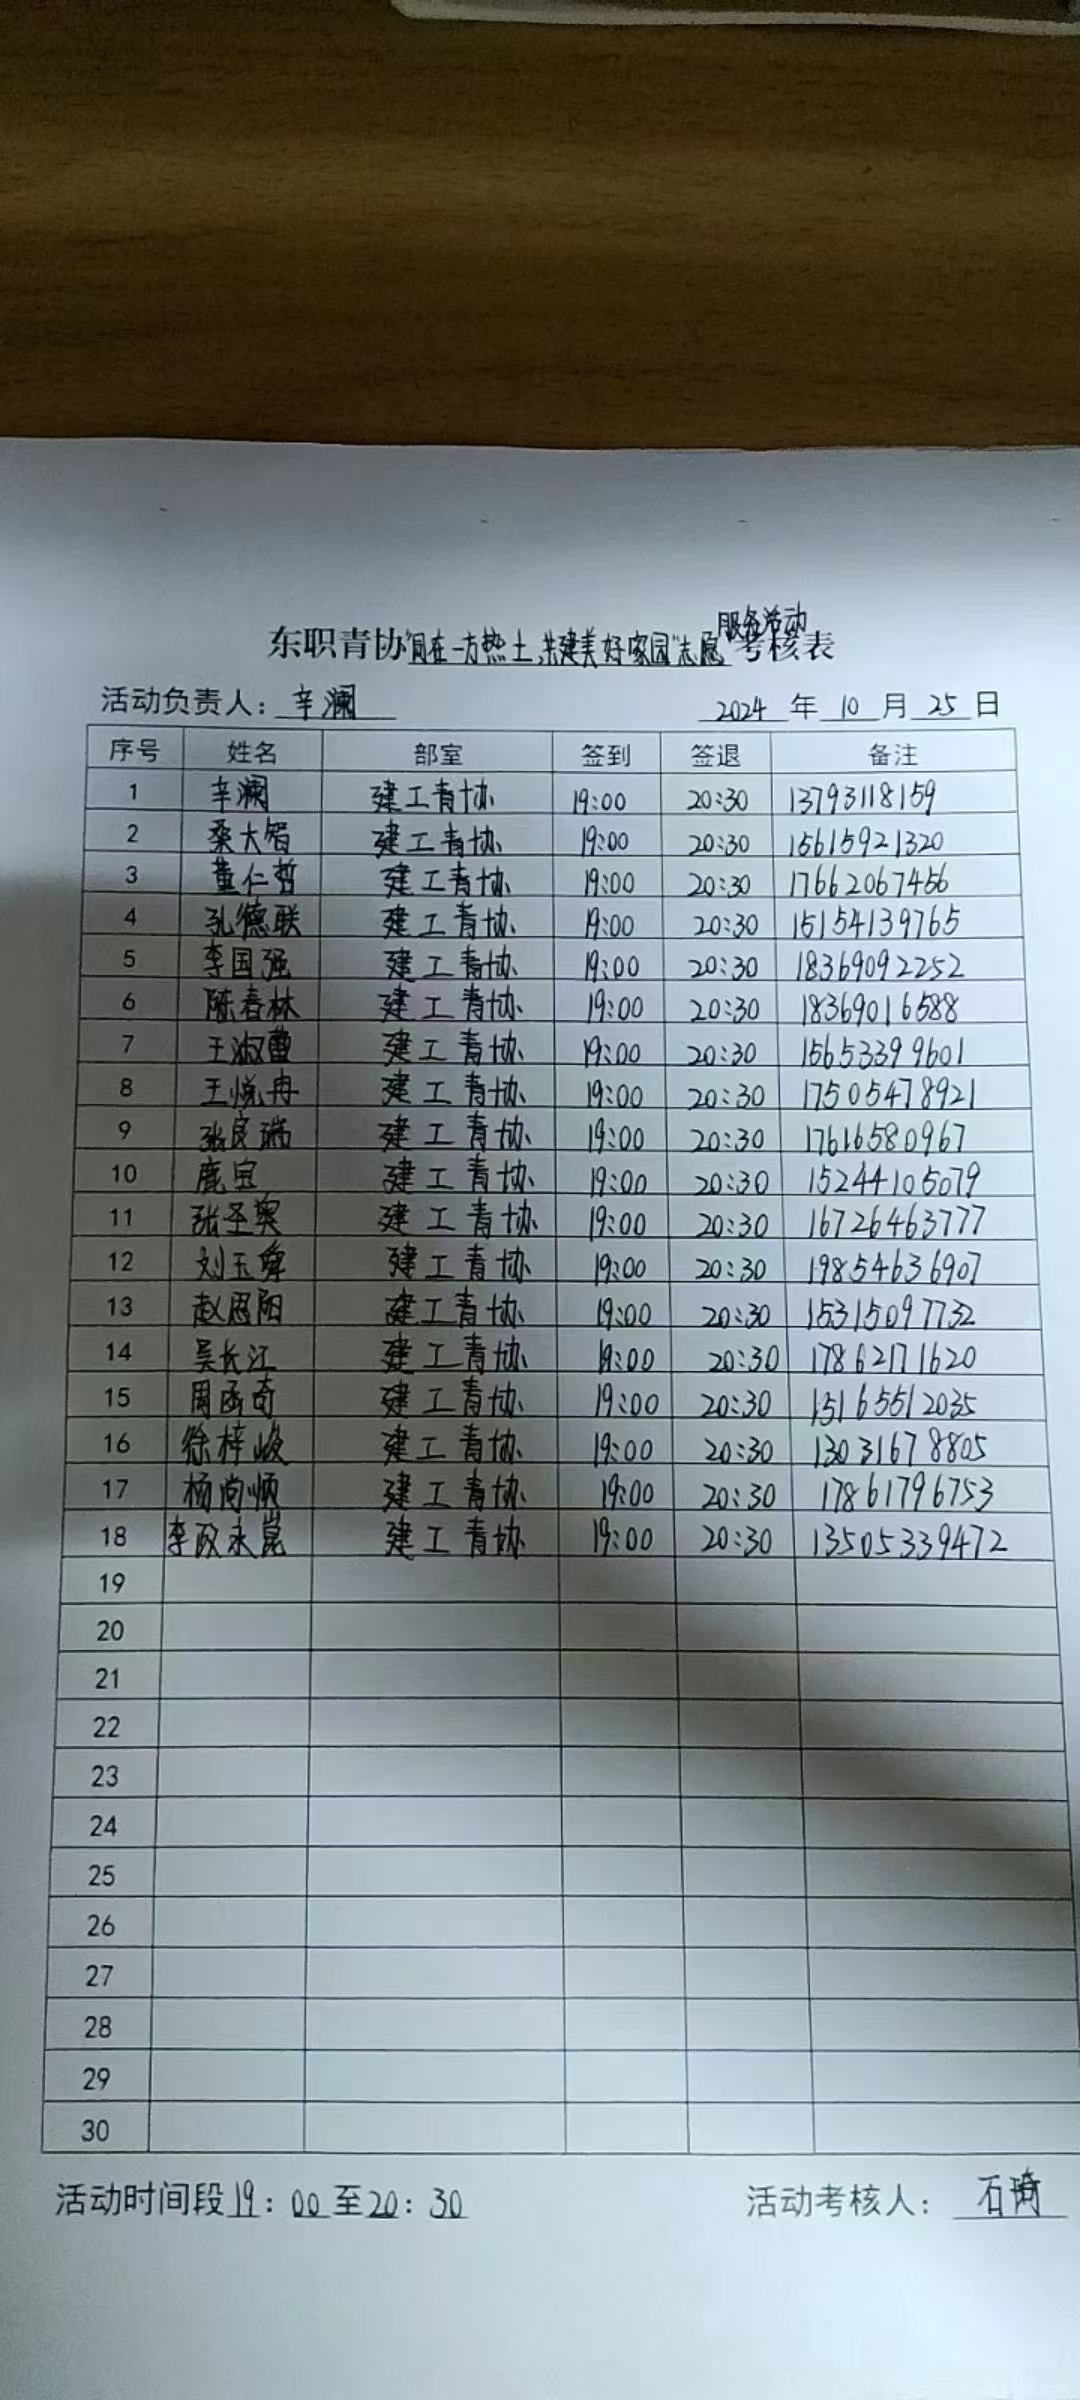 服务活动
东职青协"同在一方热土,共建美好家园"志愿考核表
活动负责人: 辛澜 2024 年 10 月 25 日
序号 姓名 部室 签到 签退 备注
1 辛澜 建工青协 19:00 20:30 13793118159
2 桑大智 建工青协 19:00 20:30 15615921320
3 董仁哲 建工青协 19:00 20:30 17662067456
4 孔德联 建工青协 19:00 20:30 15154139765
5 李国强 建工青协 19:00 20:30 18369092252
6 陈春林 建工青协 19:00 20:30 18369016588
7 王淑曹 建工青协 19:00 20:30 15653399601
8 王悦冉 建工青协 19:00 20:30 17505478921
9 张良瑞 建工青协 19:00 20:30 17616580967
10 鹿宝 建工青协 19:00 20:30 15244105079
11 张圣奥 建工青协 19:00 20:30 16726463777
12 刘玉舜 建工青协 19:00 20:30 19854636907
13 赵思阳 建工青协 19:00 20:30 15315097732
14 吴长江 建工青协 19:00 20:30 17862171620
15 周函奇 建工青协 19:00 20:30 15165512035
16 徐梓峻 建工青协 19:00 20:30 13031678805
17 杨尚炳 建工青协 19:00 20:30 17861796753
18 李政永崑 建工青协 19:00 20:30 13505339472
19
20
21
22
23
24
25
26
27
28
29
30
活动时间段 19: 00 至 20: 30 活动考核人: 石琦